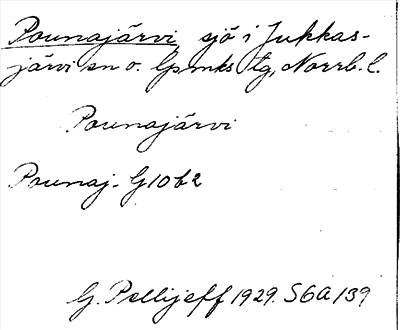 Pounajärvi, sjö i Jukkas-
järvi sn o. lpmks tg, Norrb. l.
Pounajärvi
Pounaj. G10b2
G. Pellijeff 1929. S6A 139